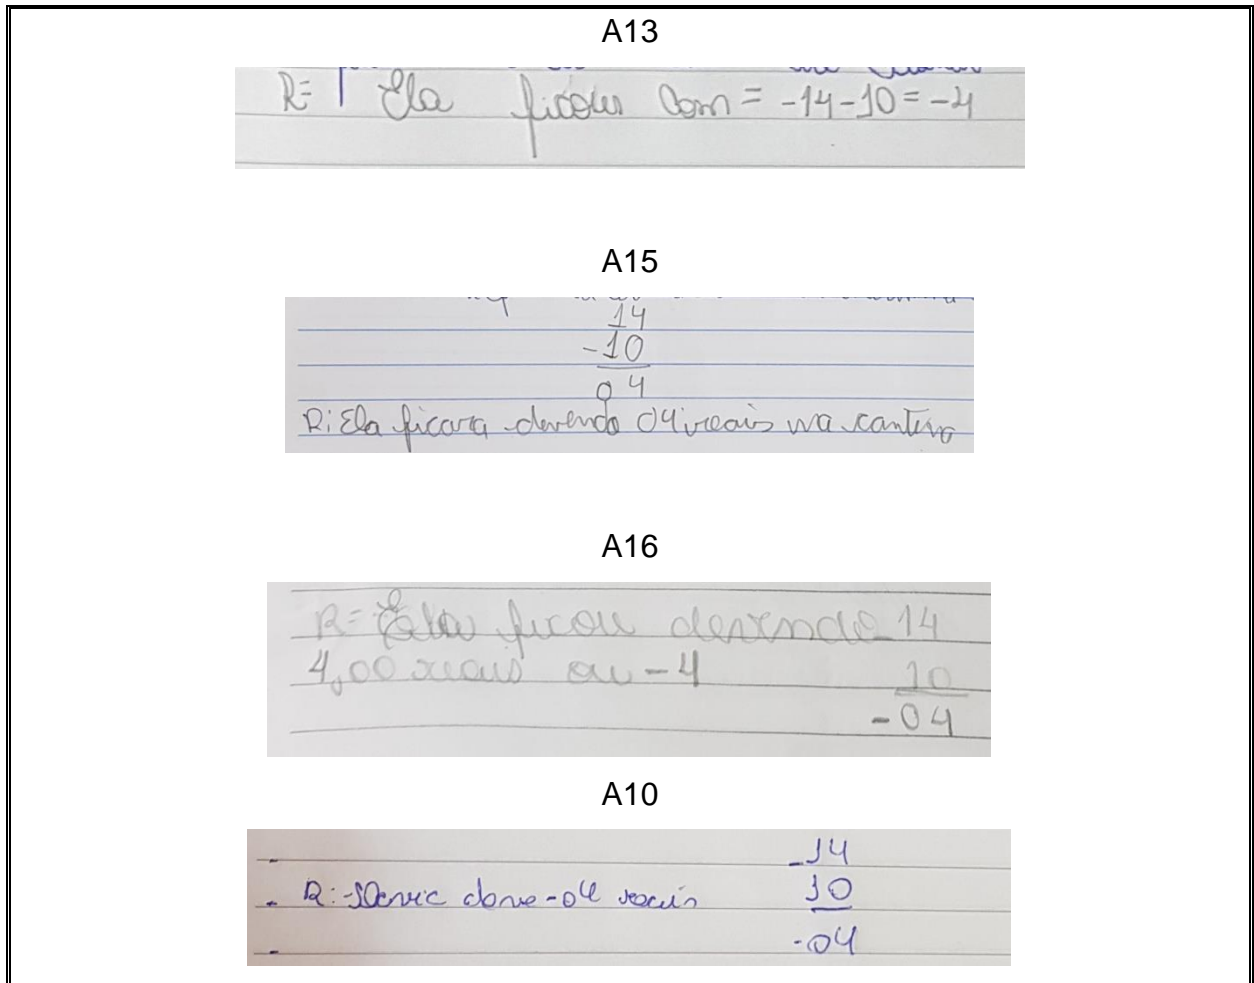 A13
R= Ela ficou com = -14-10 = -4
A15
14
-10
04
R: Ela ficara devendo 04 reais na cantina
A16
R= Ela ficou devendo -14
4,00 reais ou -4 10
-04
A10
-14
R: deve -04 reais 10
-04